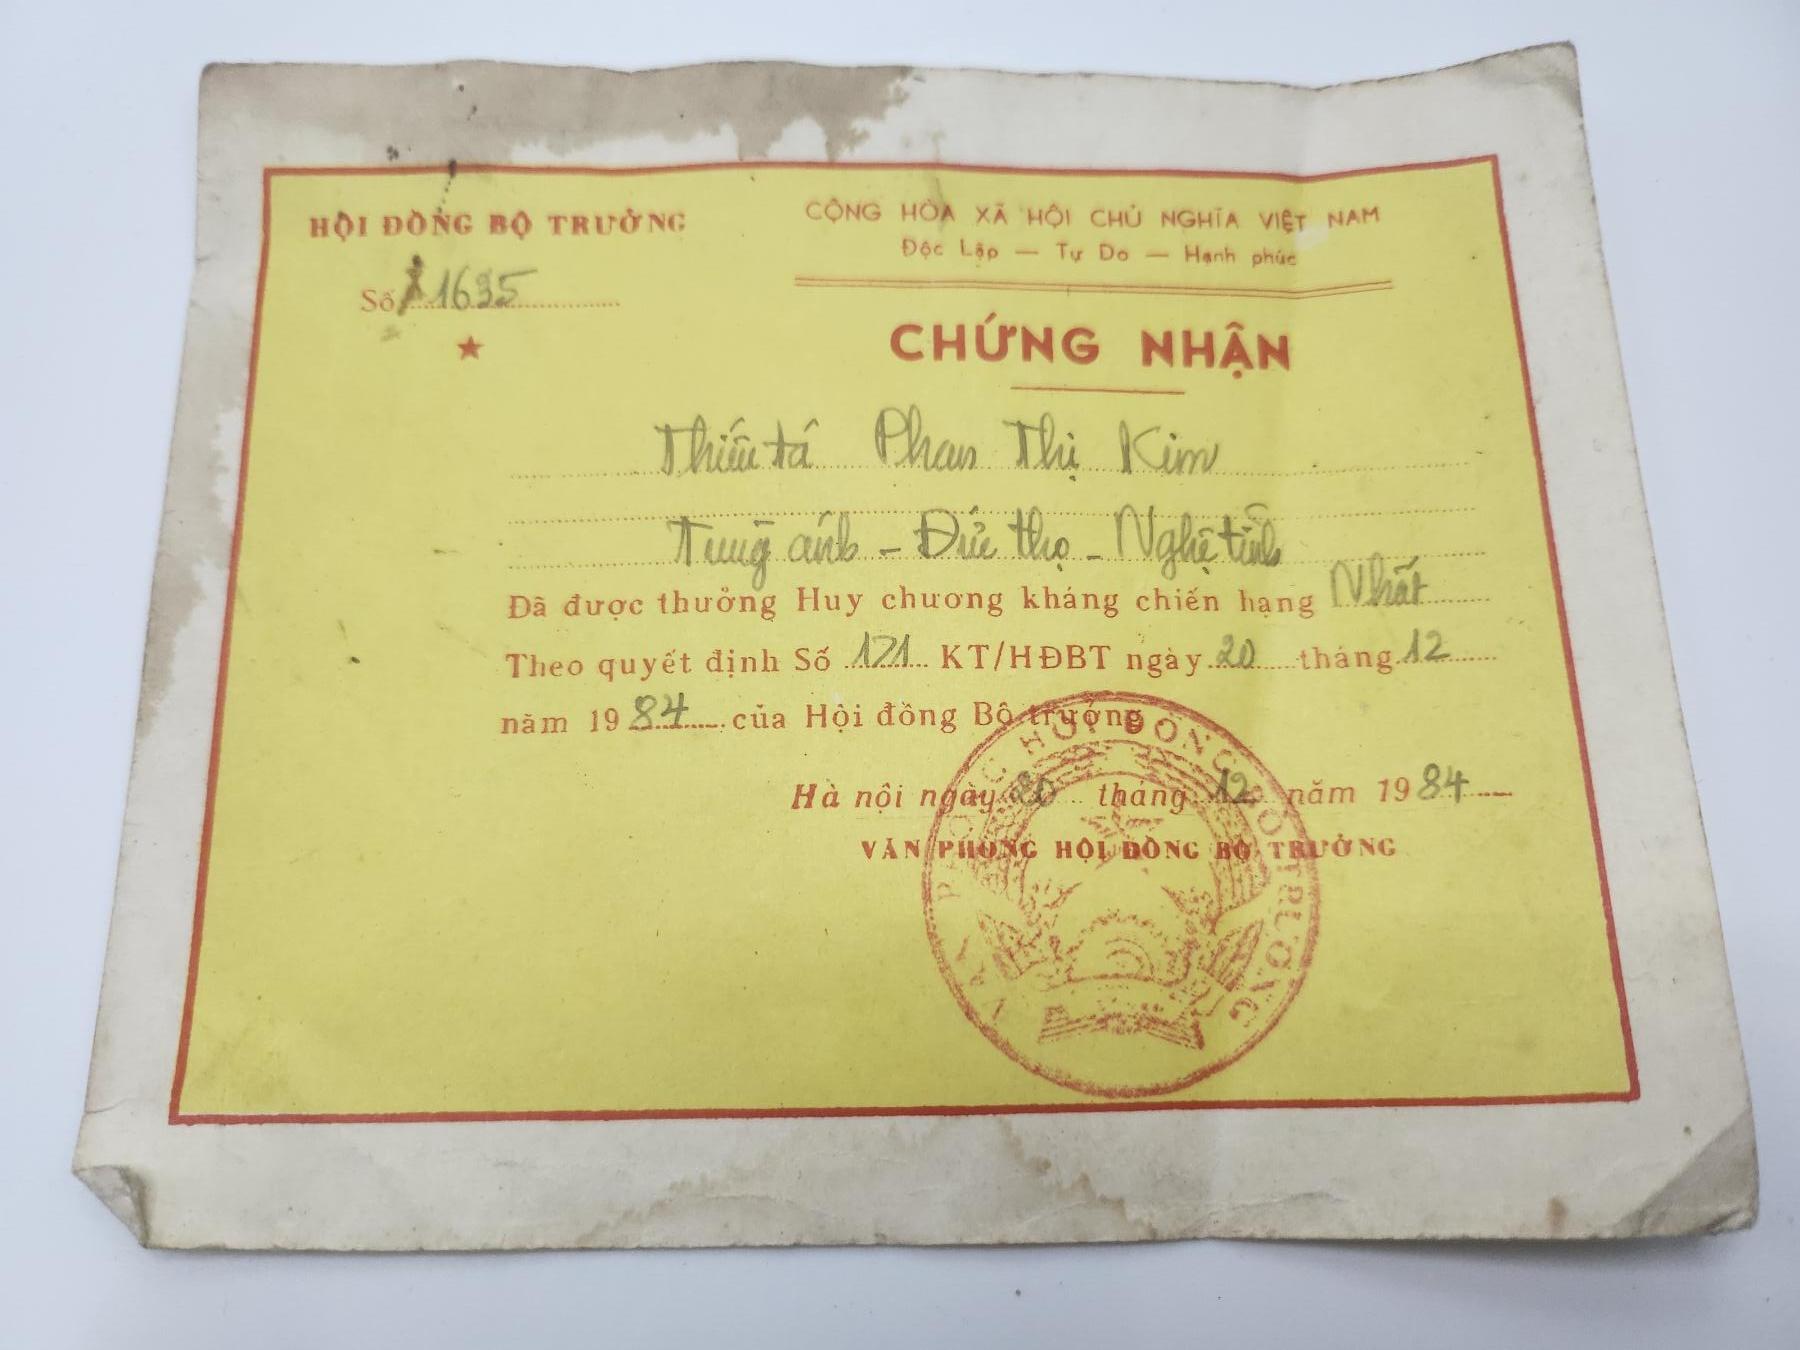 HỘI ĐỒNG BỘ TRƯỞNG
Số 1635
CỘNG HÒA XÃ HỘI CHỦ NGHĨA VIỆT NAM
Độc Lập — Tự Do — Hạnh phúc
CHỨNG NHẬN
Thiếu tá Phan Thị Kim
Tùng ảnh - Đức thọ - Nghệ tĩnh
Đã được thưởng Huy chương kháng chiến hạng Nhất
Theo quyết định Số 171 KT/HĐBT ngày 20 tháng 12
năm 1984 của Hội đồng Bộ trưởng
Hà nội ngày 20 tháng 12 năm 1984
VĂN PHÒNG HỘI ĐỒNG BỘ TRƯỞNG
VĂN PHÒNG HỘI ĐỒNG BỘ TRƯỞNG